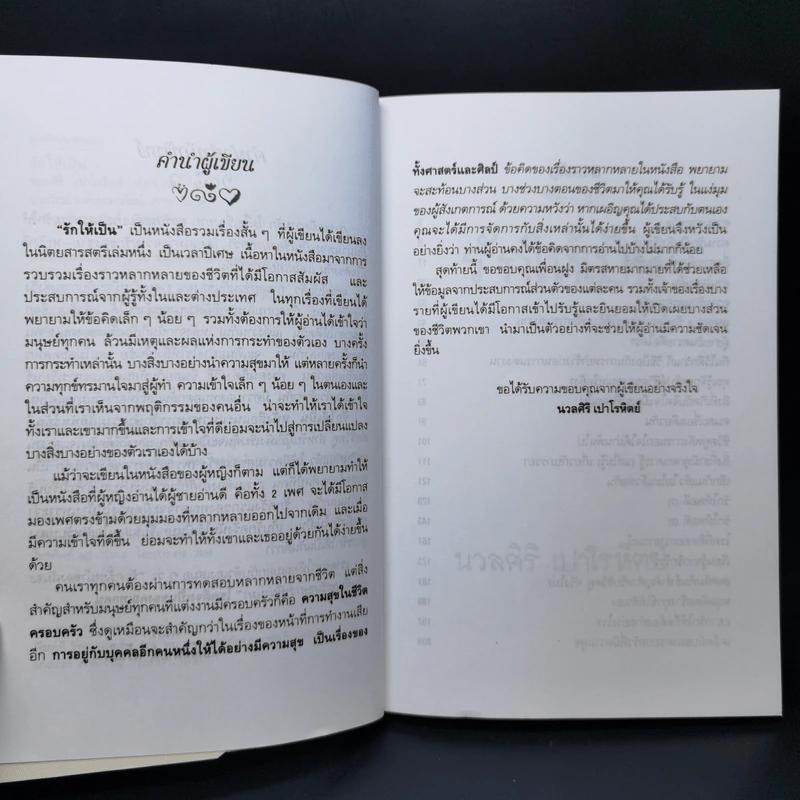 คำนำผู้เขียน
"รักให้เป็น" เป็นหนังสือรวมเรื่องสั้น ๆ ที่ผู้เขียนได้เขียนลง
ในนิตยสารสตรีเล่มหนึ่ง เป็นเวลาปีเศษ เนื้อหาในหนังสือมาจากการ
รวบรวมเรื่องราวหลากหลายของชีวิตที่ได้มีโอกาสสัมผัส และ
ประสบการณ์จากผู้รู้ทั้งในและต่างประเทศ ในทุกเรื่องที่เขียนได้
พยายามให้ข้อคิดเล็ก ๆ น้อย ๆ รวมทั้งต้องการให้ผู้อ่านได้เข้าใจว่า
มนุษย์ทุกคน ล้วนมีเหตุและผลแห่งการกระทำของตัวเอง บางครั้ง
การกระทำเหล่านั้น บางสิ่งบางอย่างนำความสุขมาให้ แต่หลายครั้งก็นำ
ความทุกข์ทรมานใจมาสู่ผู้ทำ ความเข้าใจเล็ก ๆ น้อย ๆ ในตนเองและ
ในส่วนที่เราเห็นจากพฤติกรรมของคนอื่น น่าจะทำให้เราได้เข้าใจ
ทั้งเราและเขามากขึ้นและการเข้าใจที่ดีย่อมจะนำไปสู่การเปลี่ยนแปลง
บางสิ่งบางอย่างของตัวเราเองได้บ้าง
แม้ว่าจะเขียนในหนังสือของผู้หญิงก็ตาม แต่ก็ได้พยายามทำให้
เป็นหนังสือที่ผู้หญิงอ่านได้ผู้ชายอ่านดี คือทั้ง 2 เพศ จะได้มีโอกาส
มองเพศตรงข้ามด้วยมุมมองที่หลากหลายออกไปจากเดิม และเมื่อ
มีความเข้าใจที่ดีขึ้น ย่อมจะทำให้ทั้งเขาและเธออยู่ด้วยกันได้ง่ายขึ้น
ด้วย
คนเราทุกคนต้องผ่านการทดสอบหลากหลายจากชีวิต แต่สิ่ง
สำคัญสำหรับมนุษย์ทุกคนที่แต่งงานมีครอบครัวก็คือ ความสุขในชีวิต
ครอบครัว ซึ่งดูเหมือนจะสำคัญกว่าในเรื่องของหน้าที่การทำงานเสีย
อีก การอยู่กับบุคคลอีกคนหนึ่งให้ได้อย่างมีความสุข เป็นเรื่องของ
ทั้งศาสตร์และศิลป์ ข้อคิดของเรื่องราวหลากหลายในหนังสือ พยายาม
จะสะท้อนบางส่วน บางช่วงบางตอนของชีวิตมาให้คุณได้รับรู้ ในแง่มุม
ของผู้สังเกตการณ์ ด้วยความหวังว่า หากเผอิญคุณได้ประสบกับตนเอง
คุณจะได้มีการจัดการกับสิ่งเหล่านั้นได้ง่ายขึ้น ผู้เขียนจึงหวังเป็น
อย่างยิ่งว่า ท่านผู้อ่านคงได้ข้อคิดจากการอ่านไปบ้างไม่มากก็น้อย
สุดท้ายนี้ ขอขอบคุณเพื่อนฝูง มิตรสหายมากมายที่ได้ช่วยเหลือ
ให้ข้อมูลจากประสบการณ์ส่วนตัวของแต่ละคน รวมทั้งเจ้าของเรื่องบาง
รายที่ผู้เขียนได้มีโอกาสเข้าไปรับรู้และยินยอมให้เปิดเผยบางส่วน
ของชีวิตพวกเขา นำมาเป็นตัวอย่างที่จะช่วยให้ผู้อ่านมีความชัดเจน
ยิ่งขึ้น
ขอได้รับความขอบคุณจากผู้เขียนอย่างจริงใจ
นวลศิริ เปาโรหิตย์